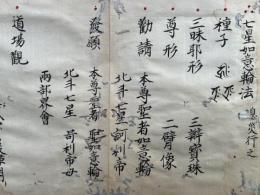 七星如意輪法 息災行之
種子
三昧耶形 三瓣寶珠
尊形 二臂像
勸請 本尊聖者如意輪
北斗七星訶利帝
發願 本尊聖者聖如意輪
北斗七星 訶利帝母
兩部界會
道場觀